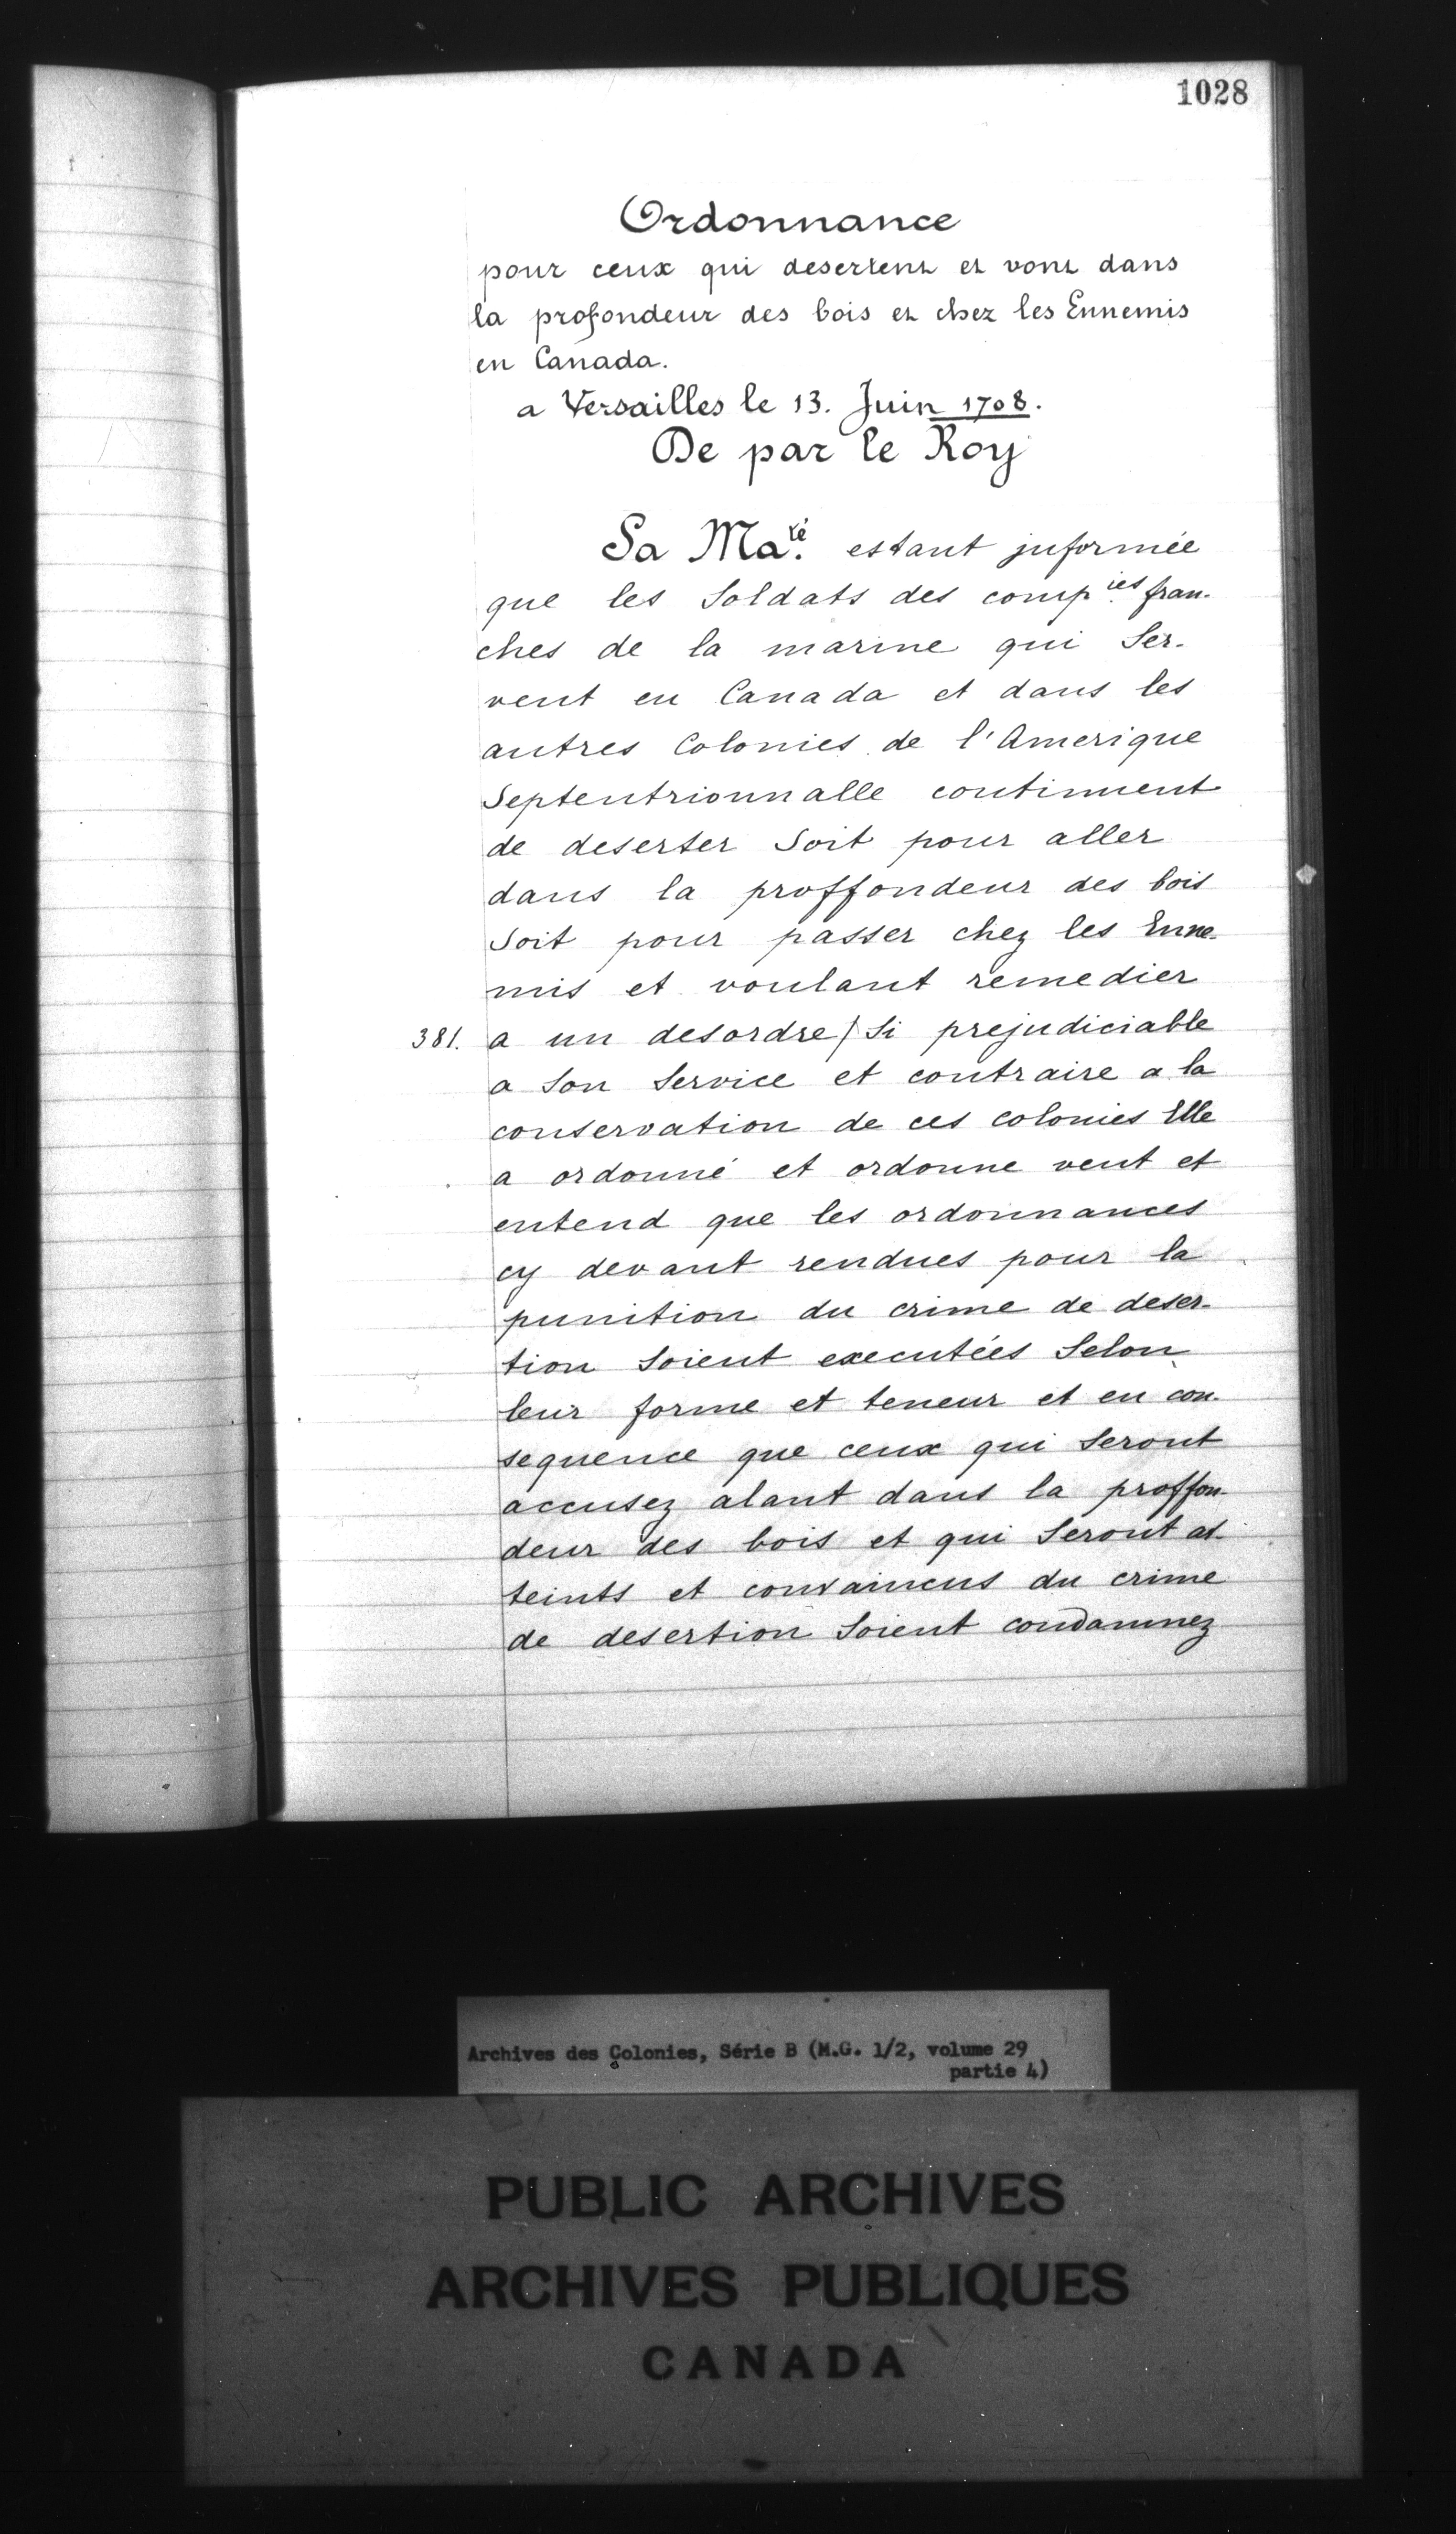 1028
Ordonnance
pour ceux qui desertent et vont dans
la profondeur des bois et chez les Ennemis
en Canada.
a Versailles le 13. Juin 1708.
De par le Roy
Sa Ma.té estant jnformée
que les Soldats des comp.ies fran-
ches de la marine qui Ser-
vent en Canada et dans les
autres Colonies de l'Amerique
Septentrionnalle continuent
de deserter Soit pour aller
dans la proffondeur des bois
Soit pour passer chez les Enne-
mis et voulant remedier
381. a un desordre / Si prejudiciable
a Son Service et contraire a la
conservation de ces colonies Elle
a ordonné et ordonne veut et
entend que les ordonnances
cy devant rendues pour la
punition du crime de deser-
tion Soient executées Selon
leur forme et teneur et en con-
sequence que ceux qui Seront
accusez alant dans la proffon-
deur des bois et qui Seront at-
teints et convaincus du crime
de desertion Soient condamnez
Archives des Colonies, Série B (M.G. 1/2, volume 29
partie 4)
PUBLIC ARCHIVES
ARCHIVES PUBLIQUES
CANADA